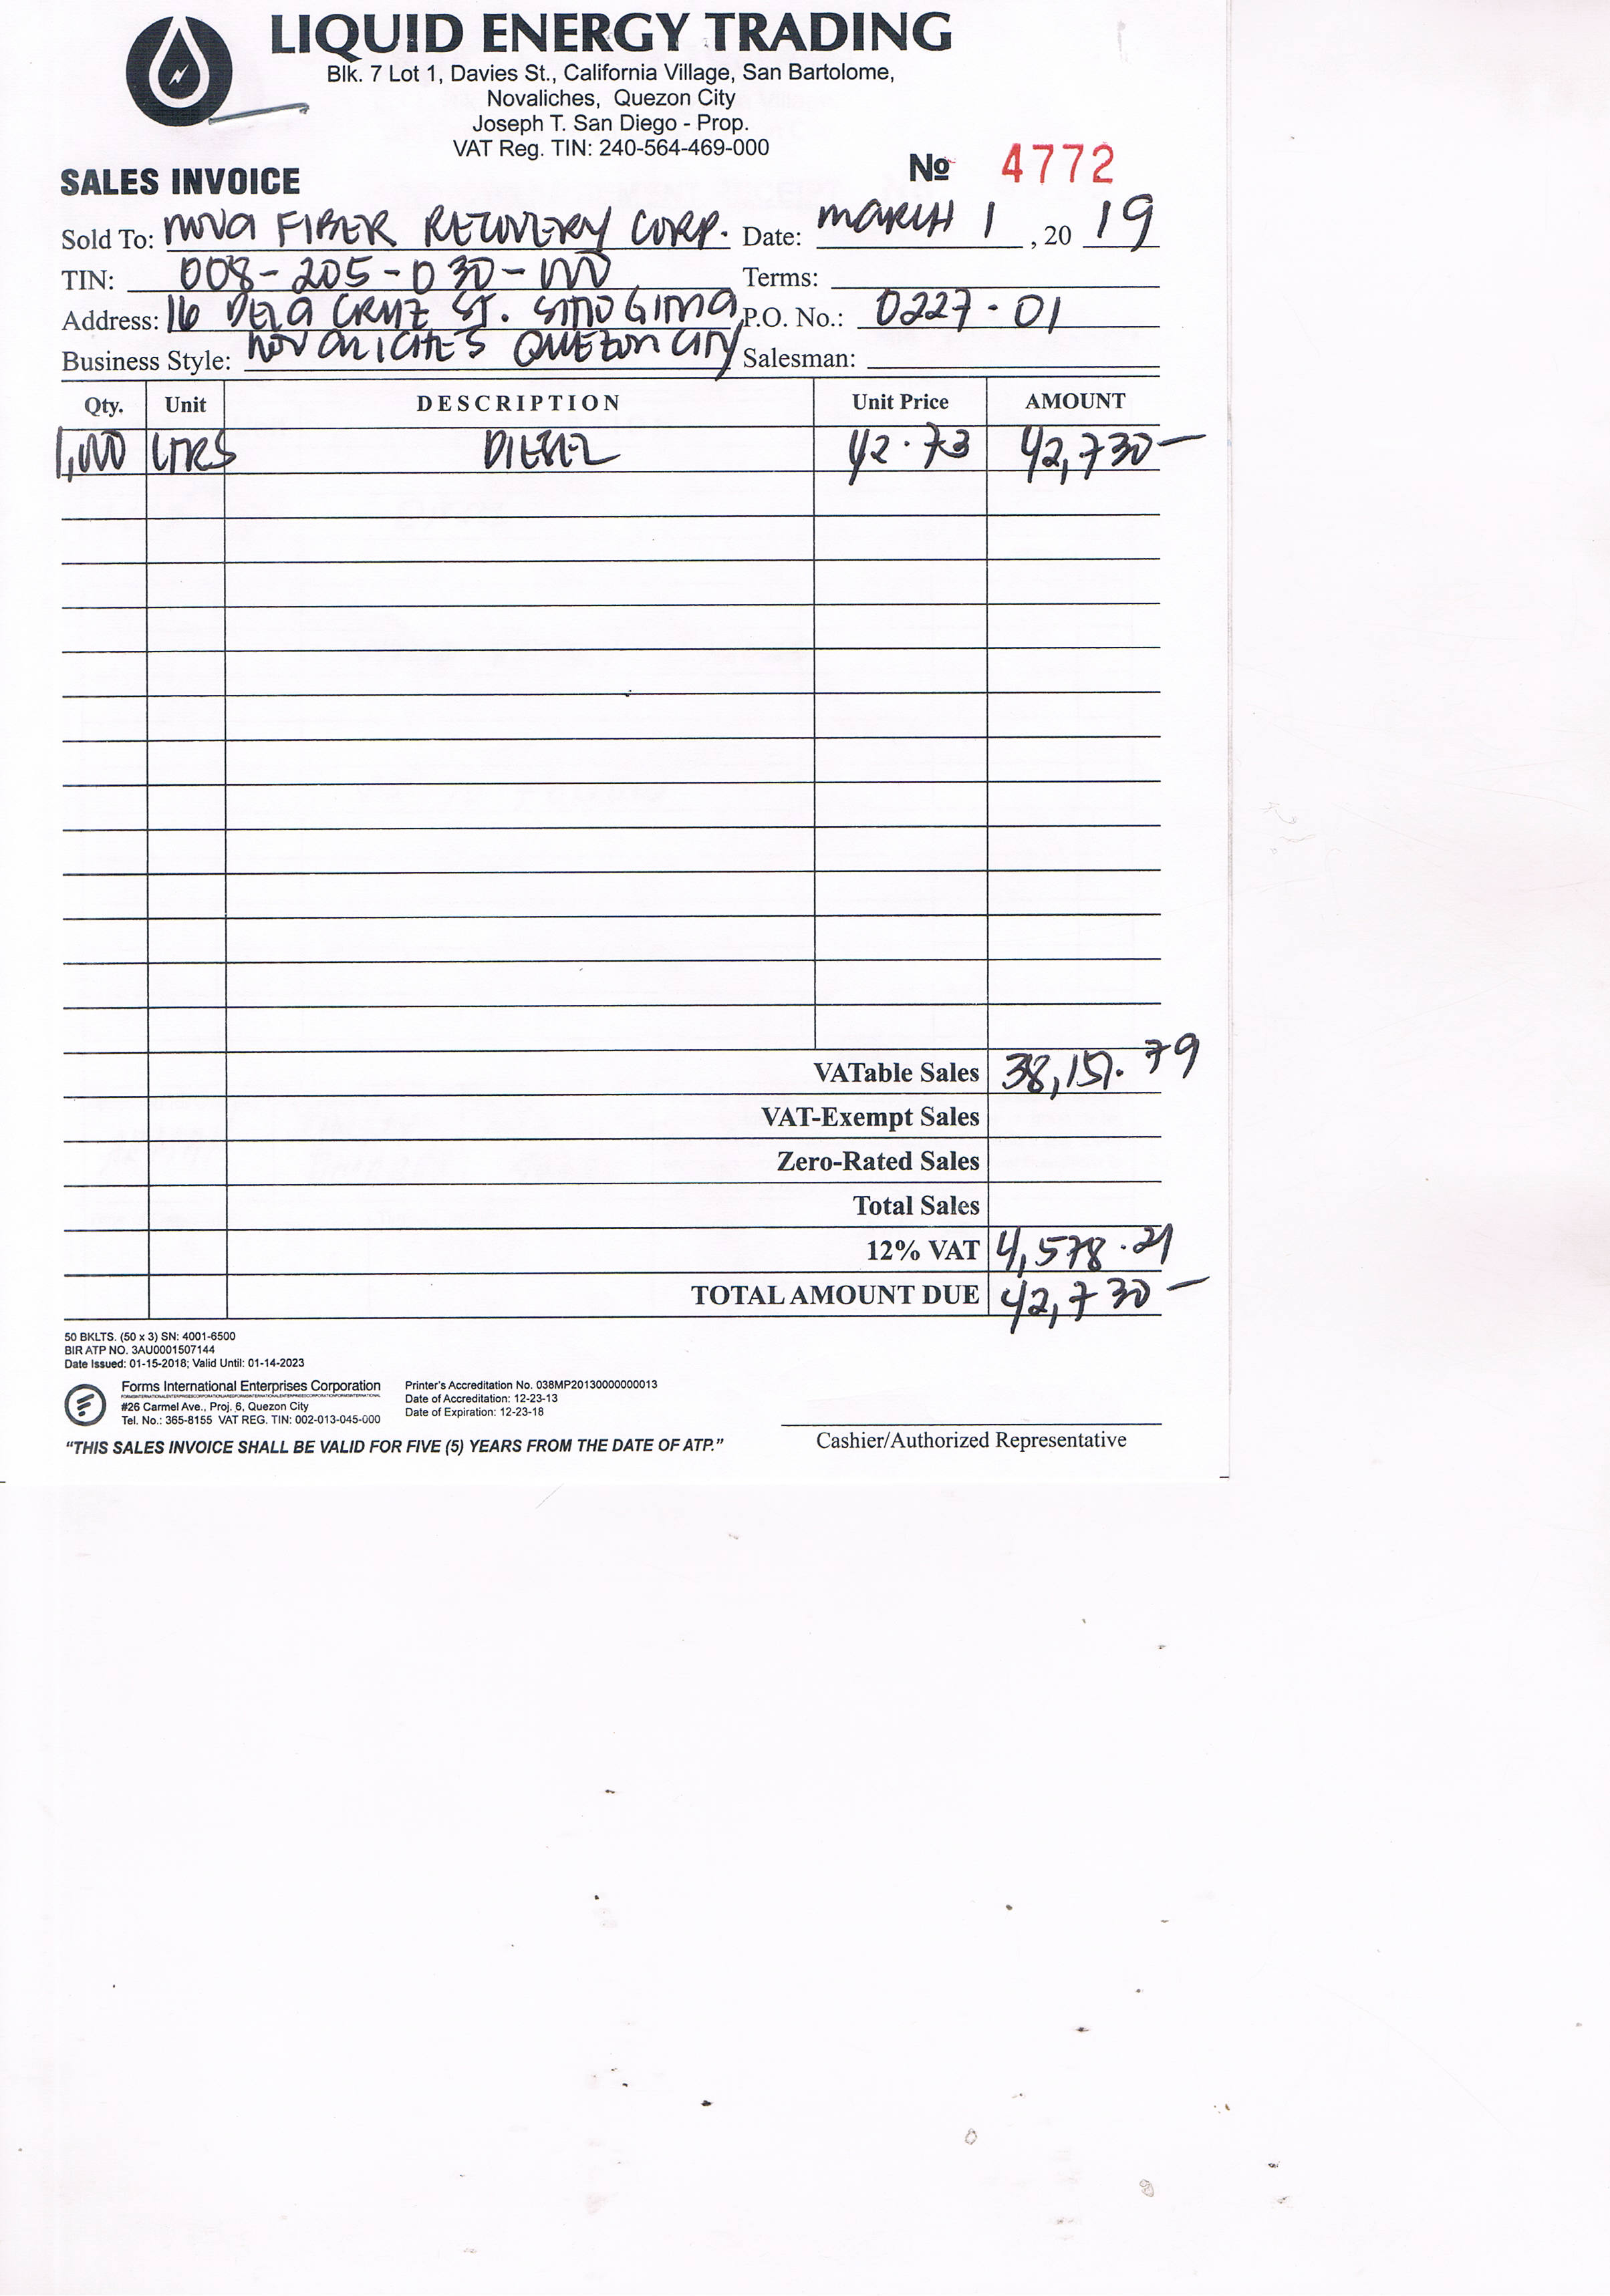 LIQUID ENERGY TRADING
Blk. 7 Lot 1, Davies St., California Village, San Bartolome,
Novaliches, Quezon City
Joseph T. San Diego - Prop.
VAT Reg. TIN: 240-564-469-000
SALES INVOICE № 4772
Sold To: NOVA FIBER RECOVERY CORP. Date: MARCH 1, 20 19
TIN: 008-205-030-000 Terms:
Address: 16 DELA CRUZ ST. SITIO GITNA, P.O. No.: 0227-01
Business Style: NOVALICHES QUEZON CITY Salesman:
Qty. Unit DESCRIPTION Unit Price AMOUNT
1,000 LTRS DIESEL 42.73 42,730-
VATable Sales 38,151.79
VAT-Exempt Sales
Zero-Rated Sales
Total Sales
12% VAT 4,578.21
TOTAL AMOUNT DUE 42,730-
50 BKLTS. (50 x 3) SN: 4001-6500
BIR ATP NO. 3AU0001507144
Date Issued: 01-15-2018; Valid Until: 01-14-2023
Forms International Enterprises Corporation
#26 Carmel Ave., Proj. 6, Quezon City
Tel. No.: 365-8155 VAT REG. TIN: 002-013-045-000
Printer's Accreditation No. 038MP20130000000013
Date of Accreditation: 12-23-13
Date of Expiration: 12-23-18
"THIS SALES INVOICE SHALL BE VALID FOR FIVE (5) YEARS FROM THE DATE OF ATP."
Cashier/Authorized Representative